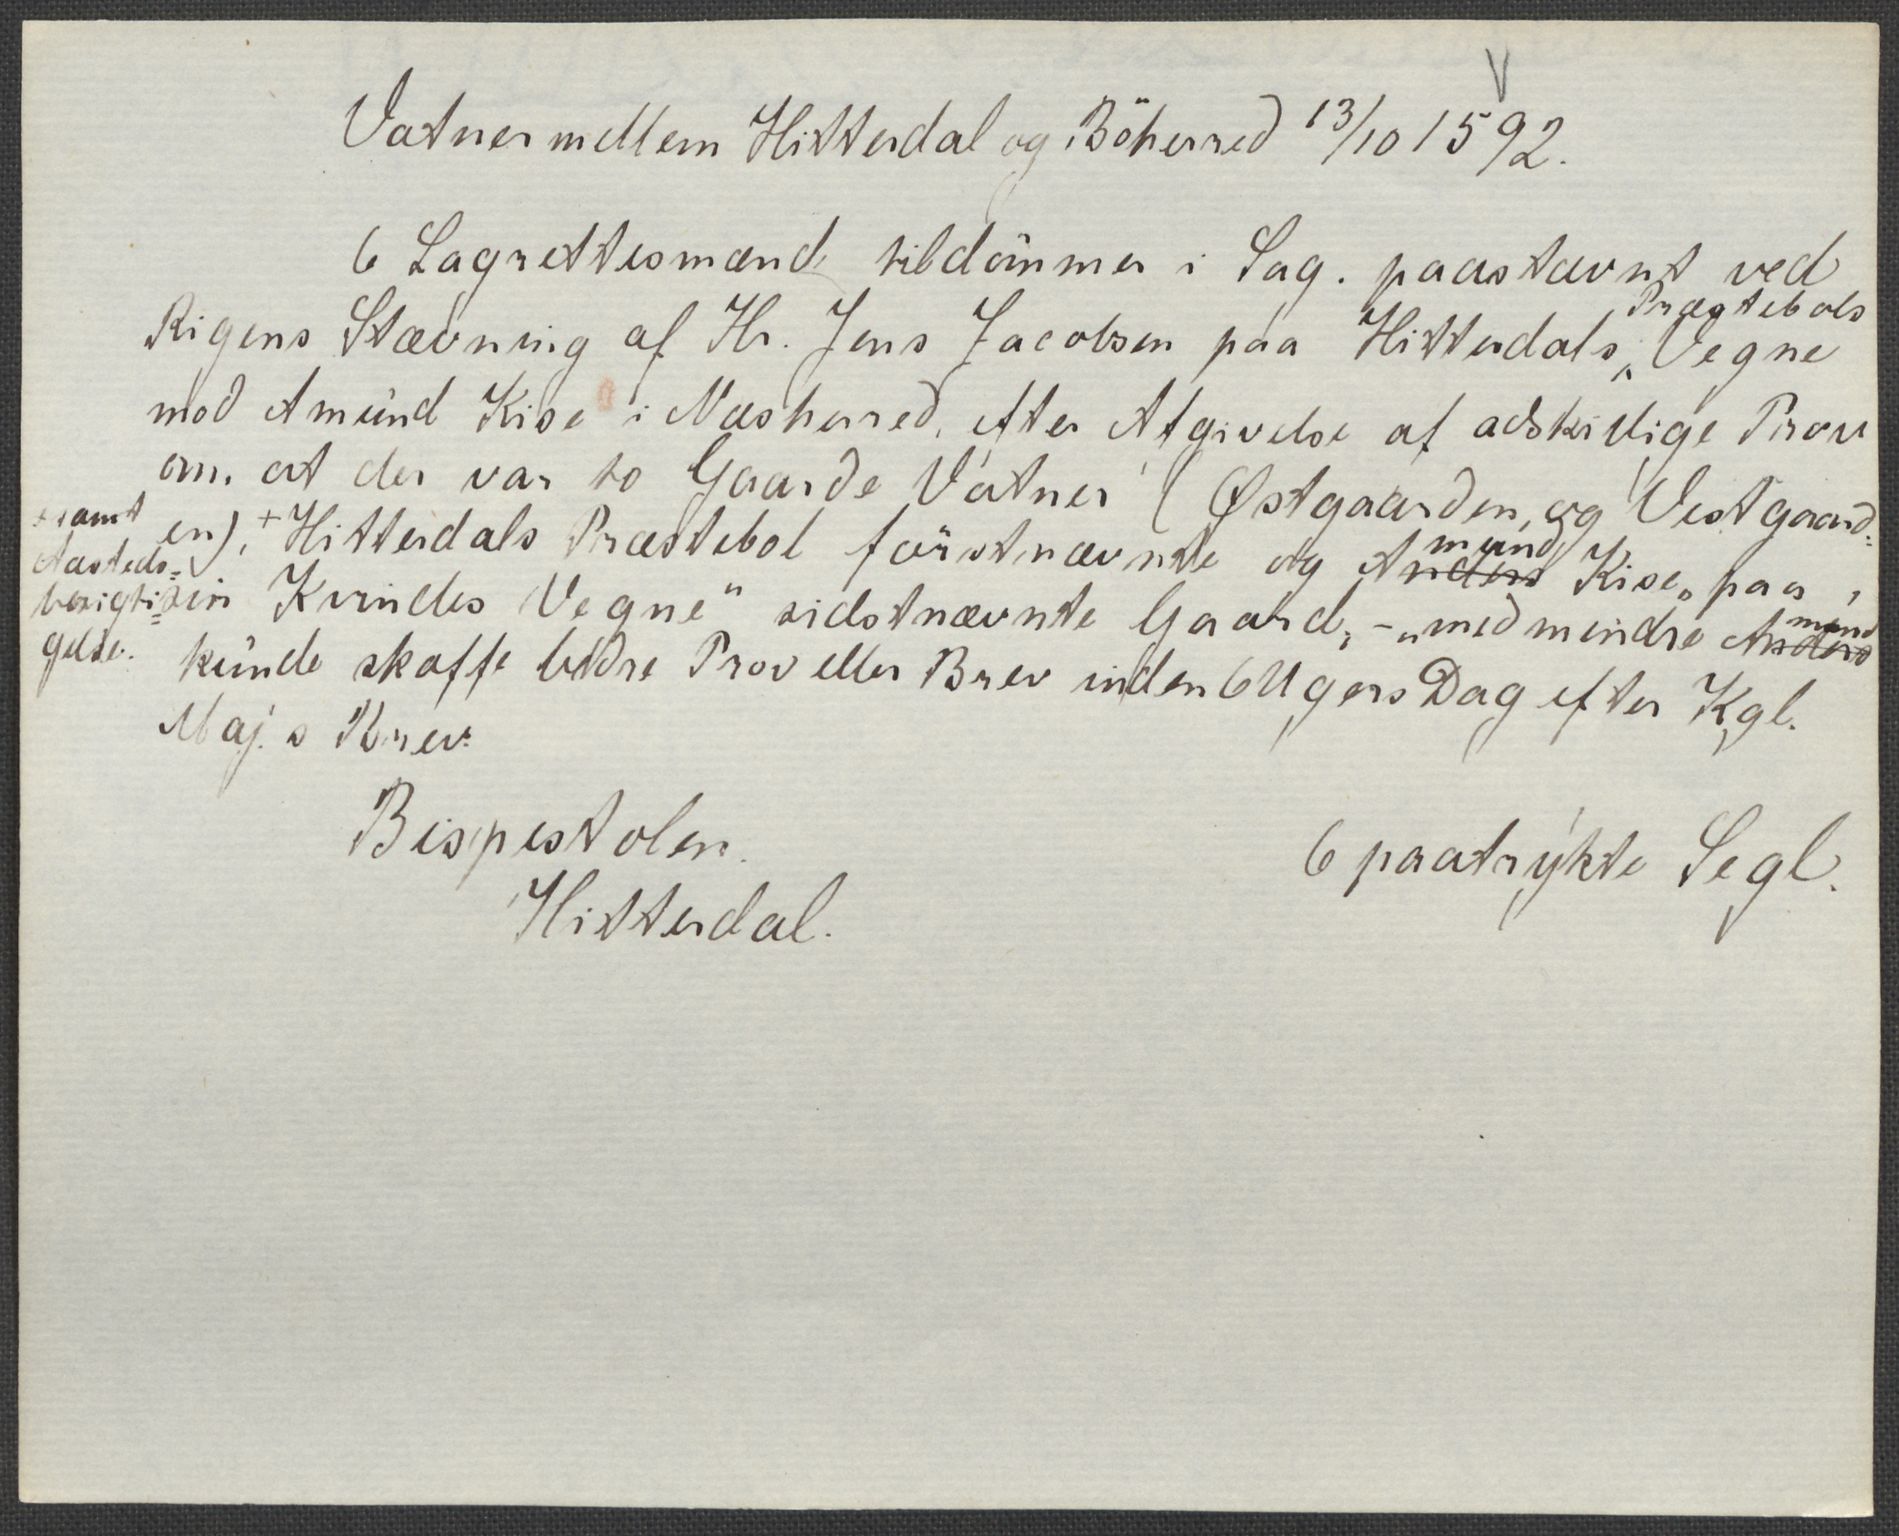 V
Vatner mellem Hitterdal og Böherred 13/10 1592.
6 Lagrettesmænd tildömmer i Sag. paastævnt ved
Rigens Stævning af Hr. Jens Jacobsen paa Hitterdals Præstebols Vegne
mod Amund Kise i Næsherred, efter Afgivelse af adskillige Prov
om. at der var to Gaarde Vatner (Østgaarden, og Vestgaard=
en), + Hitterdals Præstebol förstnævnte og Anders mund Kise „paa
+ samt
Aasteds=
besigti=
gelse.
sin Kvindes Vegne" sidstnævnte Gaard, - „med mindre Anders mund
kunde skaffe bedre Prov eller Brev inden 6 Ugers Dag efter Kgl.
Maj.s Brev.
Bispestolen.
Hitterdal.
6 paatrykte Segl.